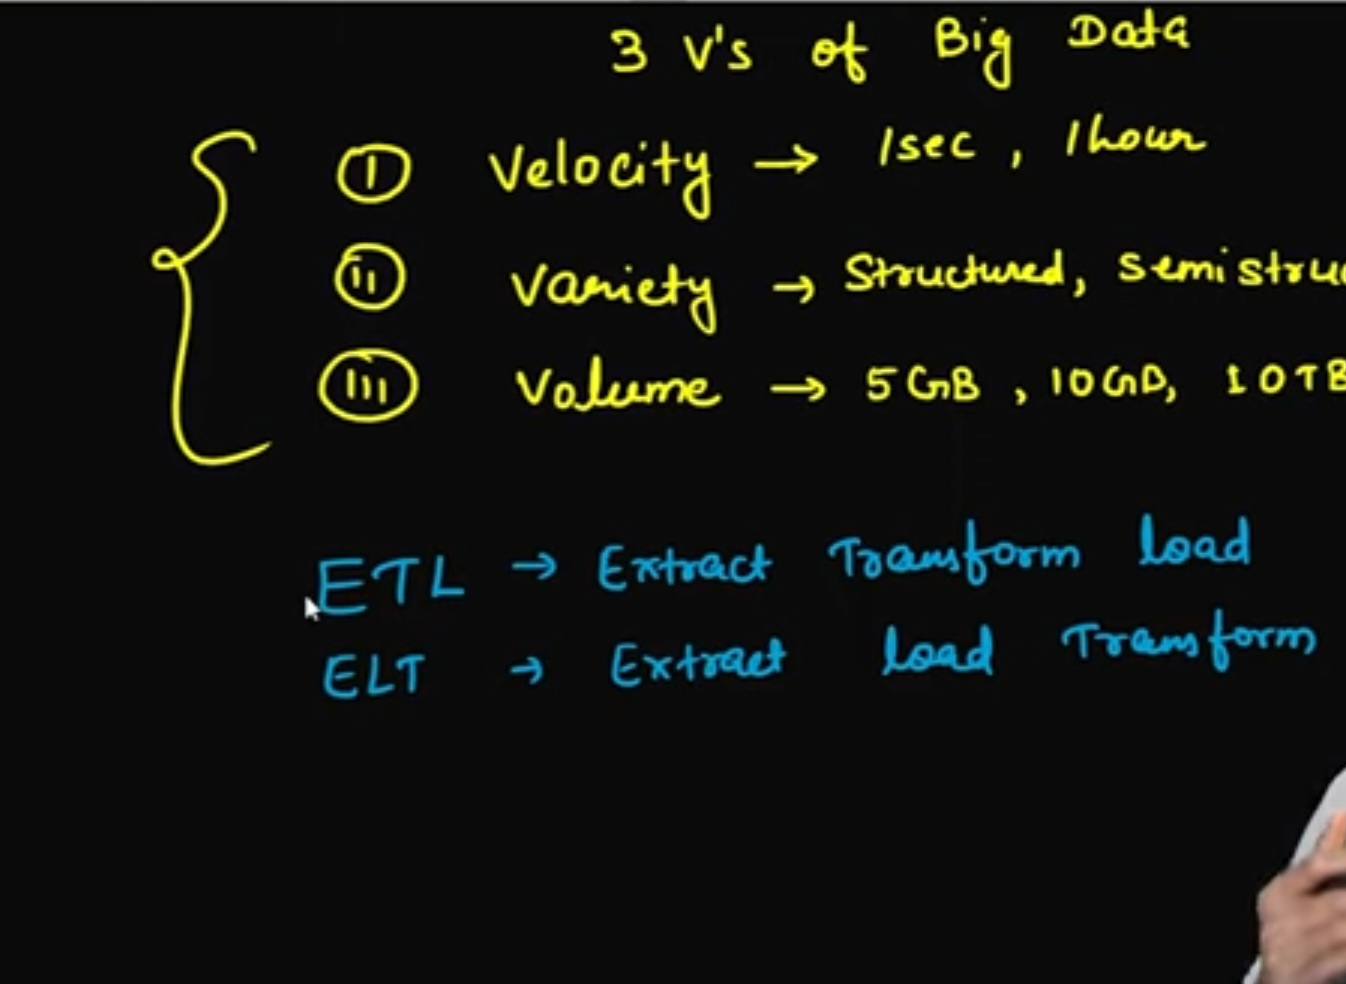 3 V's of Big Data
I Velocity → 1sec, 1hour
II Variety → Structured, Semistruc
III Volume → 5GB, 10GB, 10TB
ETL → Extract Transform load
ELT → Extract load Transform